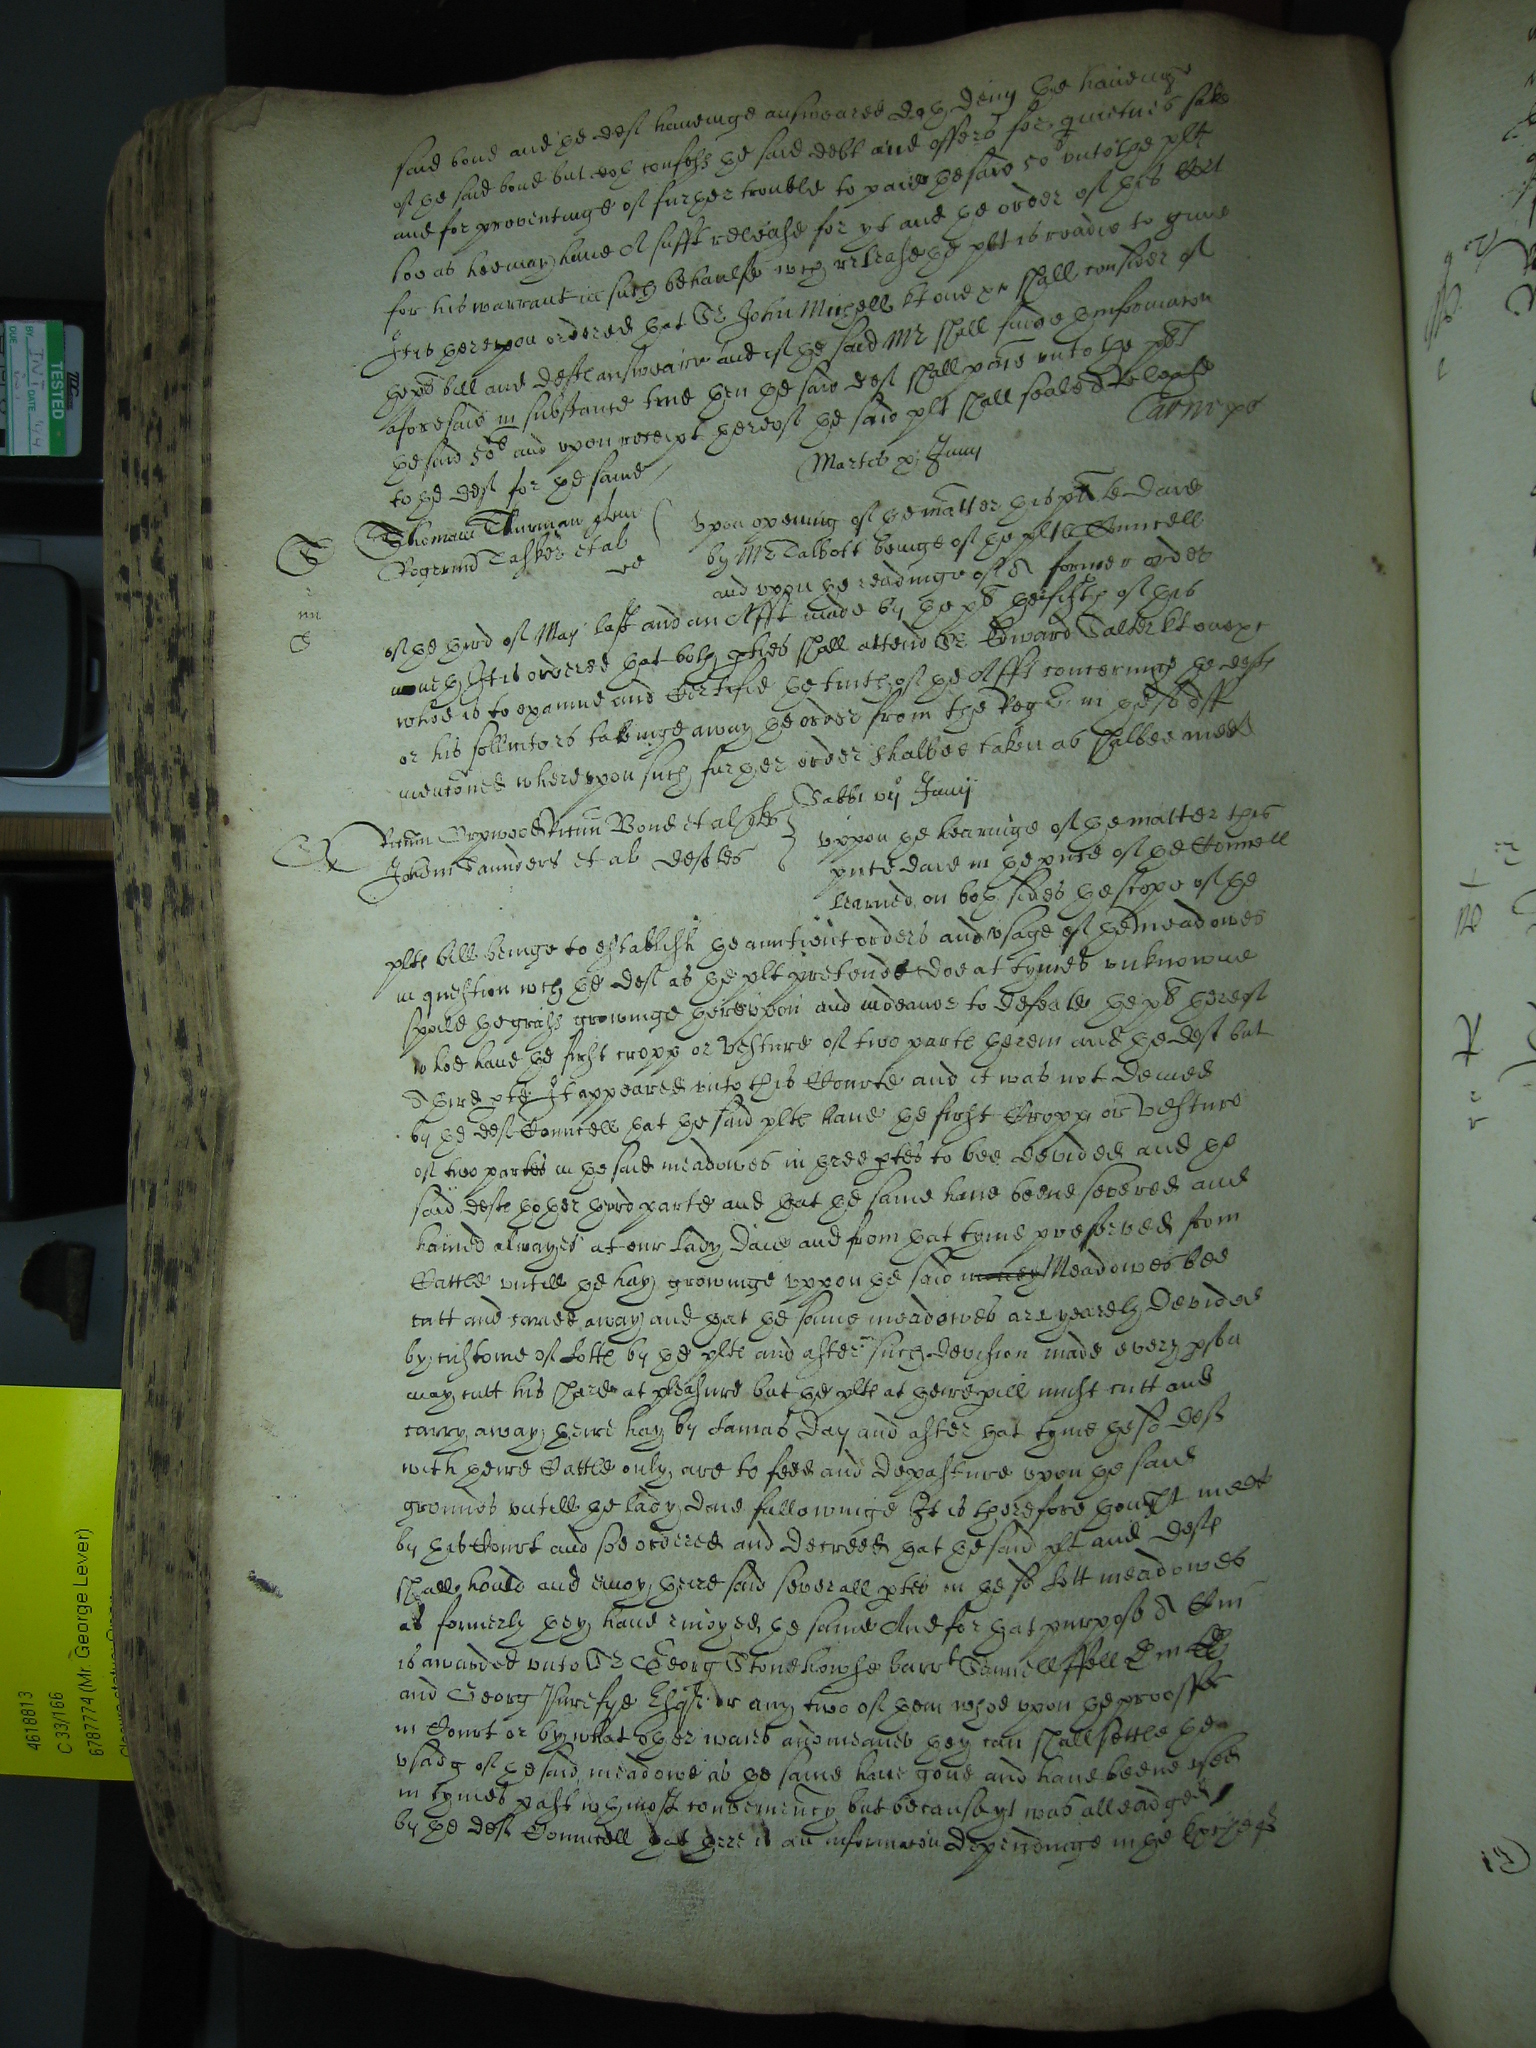 said bond and the deft haueinge answeared doth deny the haueinge
of the said bond but doth confess the said debt and offers for quietnes sake
and for preventinge of further trouble to paie the said 50li vnto the plt
soe as hee may haue A suff<sup>t</sup> release for yt and the order of this Crt
for his warrant in such behaulfe wch release the plt is readie to giue
It is therevpon ordered that Sr John Michell kt one &c shall consider of
the pts bill and defts answeare and if the said Mr shall finde thinformacon
aforesaid in substance true then the said deft shall paie vnto the plt
the said 50li and vpon receipt thereof the said plt shall seale A Release
to the deft for the same
Martis x Junij
Thomas Thurman
Tasker et al
de
Vpon opening of the matter this pnt daie
by Mr Talbott beinge of the plts Councell
and vpon the readinge of A former order
of the third of May last and an Afft made by the pt the fifth of this
moneth It is ordered that both pties shall attend Sr Edward Salter kt one &c
whoe is to examine and Certifie the truth of the Afft concerninge the defts
or his sollicitors takeinge away the order from the Regr in the sd Aff
mencõned wherevpon such further order shalbee taken as shalbee meete
Sabbi vij Junij
Bond et al ples
Saunders et al deftes
Vppon the hearinge of the matter this
pnte daie in the pnce of the Councell
learned on both sides the scope of the
plts bill beinge to establish the aunctient orders and vsage of the meadowes
in question wch the deft as the plt pretendes doe at tymes vnknowne
spoile the grass growinge therevpon and indeauor to defeate the pts thereof
whoe haue the first cropp or vesture of two parts therein and the deft but
A third pte It appeared vnto this Courte and it was not denied
by the deft Councell that the said plts haue the first Cropp or Vesture
of two partes in the said meadowes in three ptes to bee devided and the
said defts thother third parte and that the same haue beene severed and
hained alwayes at our Lady Daie and from that tyme preserved from
Cattle vntill the hay growinge vppon the said Meadowes bee
cutt and caried away and that the same meadowes are yearely Devided
by custome of Lotts by the plts and after such devision made every pson
may cutt his share at pleasure but the plts at theire perill must cutt and
carry away theire hay by Lamas Day and after that tyme the sd deft
with theire Cattle only are to feed and depasture vpon the said
grounds vntill the lady daie followinge It is therefore thought meet
by this Court and soe ordered and decreed that the said plt and defts
shall hould and enioy theire said severall ptes in the sd Lott meadowes
as formerly they haue enioyed the same And for that purpose A Com
is awarded vnto Sr Georg Stonehowse barrt Samuell ffell
and Georg Purefye Esqrs or any two of them whoe vpon the prooffes
in Court or by what other waies and meanes they can shall settle the
vsadg of the said meadowe as the same haue gone and haue beene vsed
in tymes past wth most conveniency but because yt was alleadged
by the deft Councell that there is an informacon dependinge in the Exchequer
TESTED
4618813
C 33/166
6787774 (Mr. George Lever)